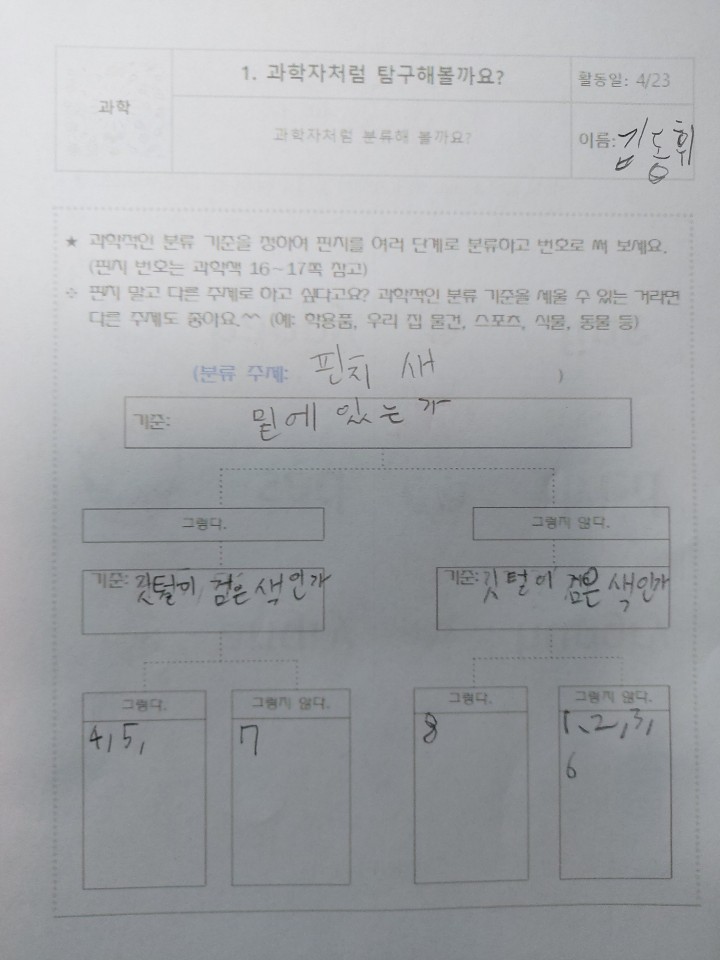 과학
1. 과학자처럼 탐구해볼까요?
활동일: 4/23
과학자처럼 분류해 볼까요?
이름: 김동휘
★ 과학적인 분류 기준을 정하여 핀치를 여러 단계로 분류하고 번호로 써 보세요.
(핀치 번호는 과학책 16~17쪽 참고)
❖ 핀치 말고 다른 주제로 하고 싶다고요? 과학적인 분류 기준을 세울 수 있는 거라면
다른 주제도 좋아요.^^ (예: 학용품, 우리 집 물건, 스포츠, 식물, 동물 등)
(분류 주제: 핀치 새 )
기준: 밑에 있는가
그렇다.
그렇지 않다.
기준: 깃털이 검은색인가
기준: 깃털이 검은색인가
그렇다.
그렇지 않다.
그렇다.
그렇지 않다.
4, 5,
7
8
1, 2, 3,
6